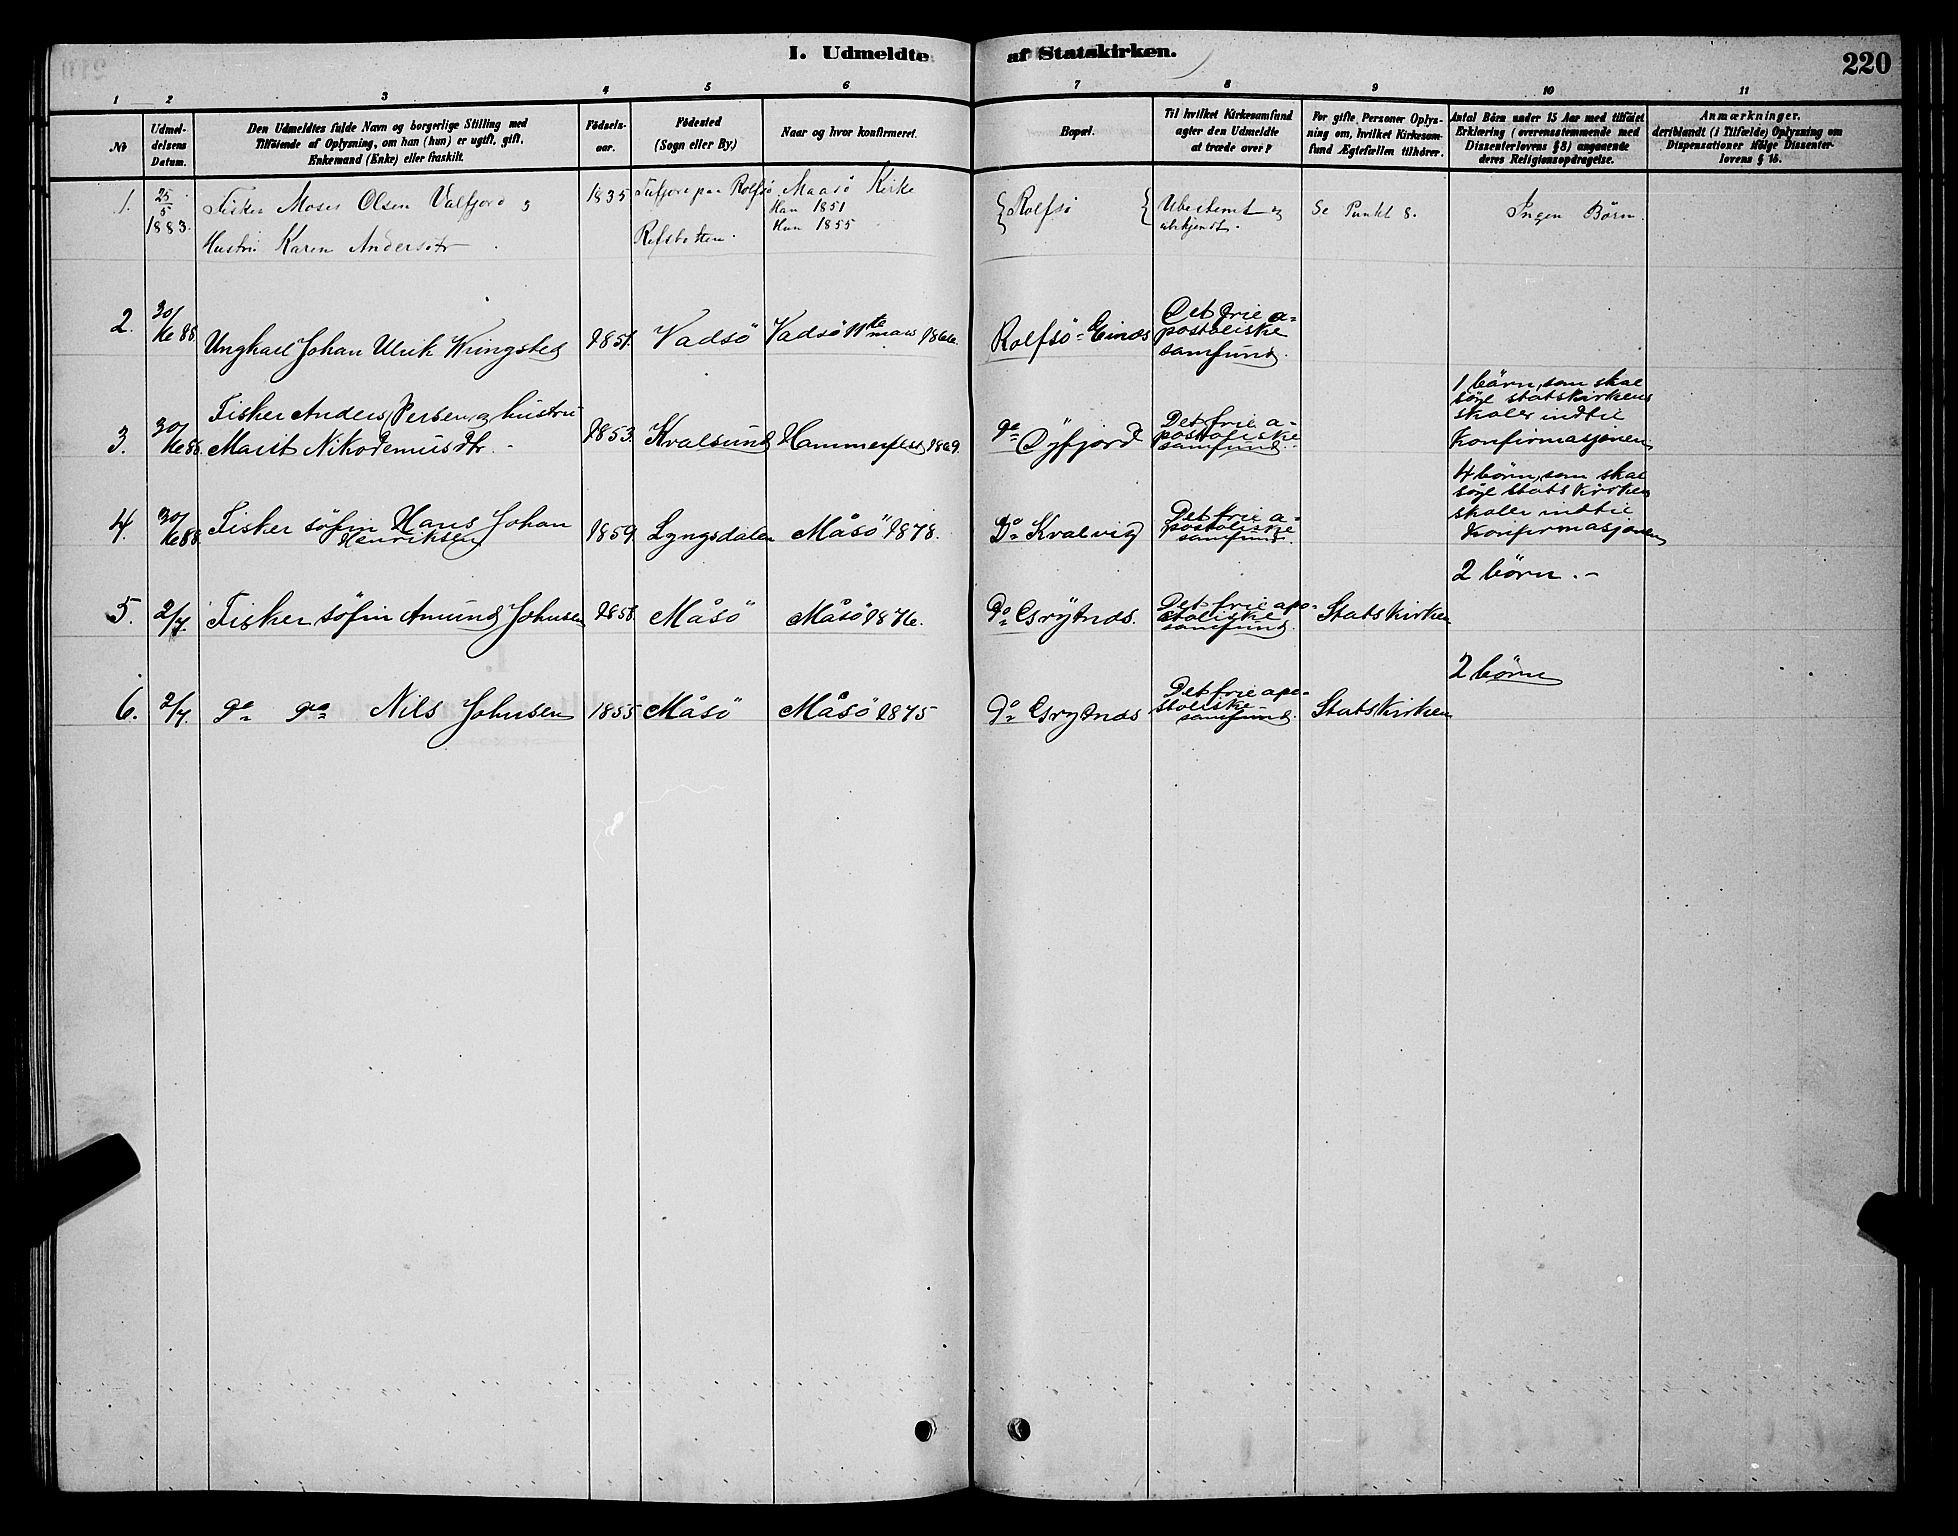 I. Udmeldte af Statskirken.
220
1 2 3 4 5 6 7 8 9 10 11
No
Udmel-
delsens
Datum.
Den Udmeldtes fulde Navn og borgerlige Stilling med
Tilföiende af Oplysning, om han (hun) er ugift, gift,
Enkemand (Enke) eller fraskilt.
Födsels-
aar.
Födested
(Sogn eller By.)
Naar og hvor konfirmeret.
Bopæl.
Til hvilket Kirkesamfund
agter den Udmeldte
at træde over?
For gifte Personer Oplys-
ning om, hvilket Kirkesam-
fund Ægtefællen tilhörer.
Antal Börn under 15 Aar med tilföiet
Erklæring (overensstemmende med
Dissenterlovens § 8) angaaende
deres Religionsopdragelse.
Anmærkninger,
deriblandt (i Tilfælde) Oplysning om
Dispensationer ifölge Dissenter-
lovens § 15.
1.
25/5
1883.
Fisker Moses Olsen Valfjord og
Hustru Karen Andersdtr
1835
Tufjord paa Rolfsö
Refsbotten.
Maasö Kirke
Han 1851
Hun 1855
Rolfsö
Ubestemt og
ubekjendt.
Se Punkt 8.
Ingen Börn.
2.
30/ 88.
Ungkarl Johan Ulrik Kringsted
1851.
Vadsö
Vadsö 11te mars 1866.
Rolfsö=Eines
Det frie a=
postoliske
samfund.
3.
30/ 88
Fisker Anders Persen og hustru
Marit Nikodemusdtr. -
1853.
Kvalsund
Hammerfest 1869.
do Dyfjord
Det frie a=
postoliske
samfund.
1 börn, som skal
söge statskirkens
skoler indtil
Konfirmasjonen
4.
30/ 88.
Fisker söfin Hans Johan
Henriksen
1859.
Lyngsdalen
Måsö 1878.
Do Kvalvig
Det frie a=
postoliske
samfund.
4 börn, som skal
söge statskirken
skoler indtil
Konfirmasjonen
5.
2/7.
Fisker söfin Amund Johnsen
1858.
Måsö
Måsö 1876.
do Grÿtnes.
Det frie apo-
stoliske
samfund.
Statskirken
2 börn. -
6.
2/7.
do do Nils Johnsen
1855
Måsö
Måsö 1875
do Grÿtnes
Det frie apo-
stoliske
samfund.
Statskirken
2 börn